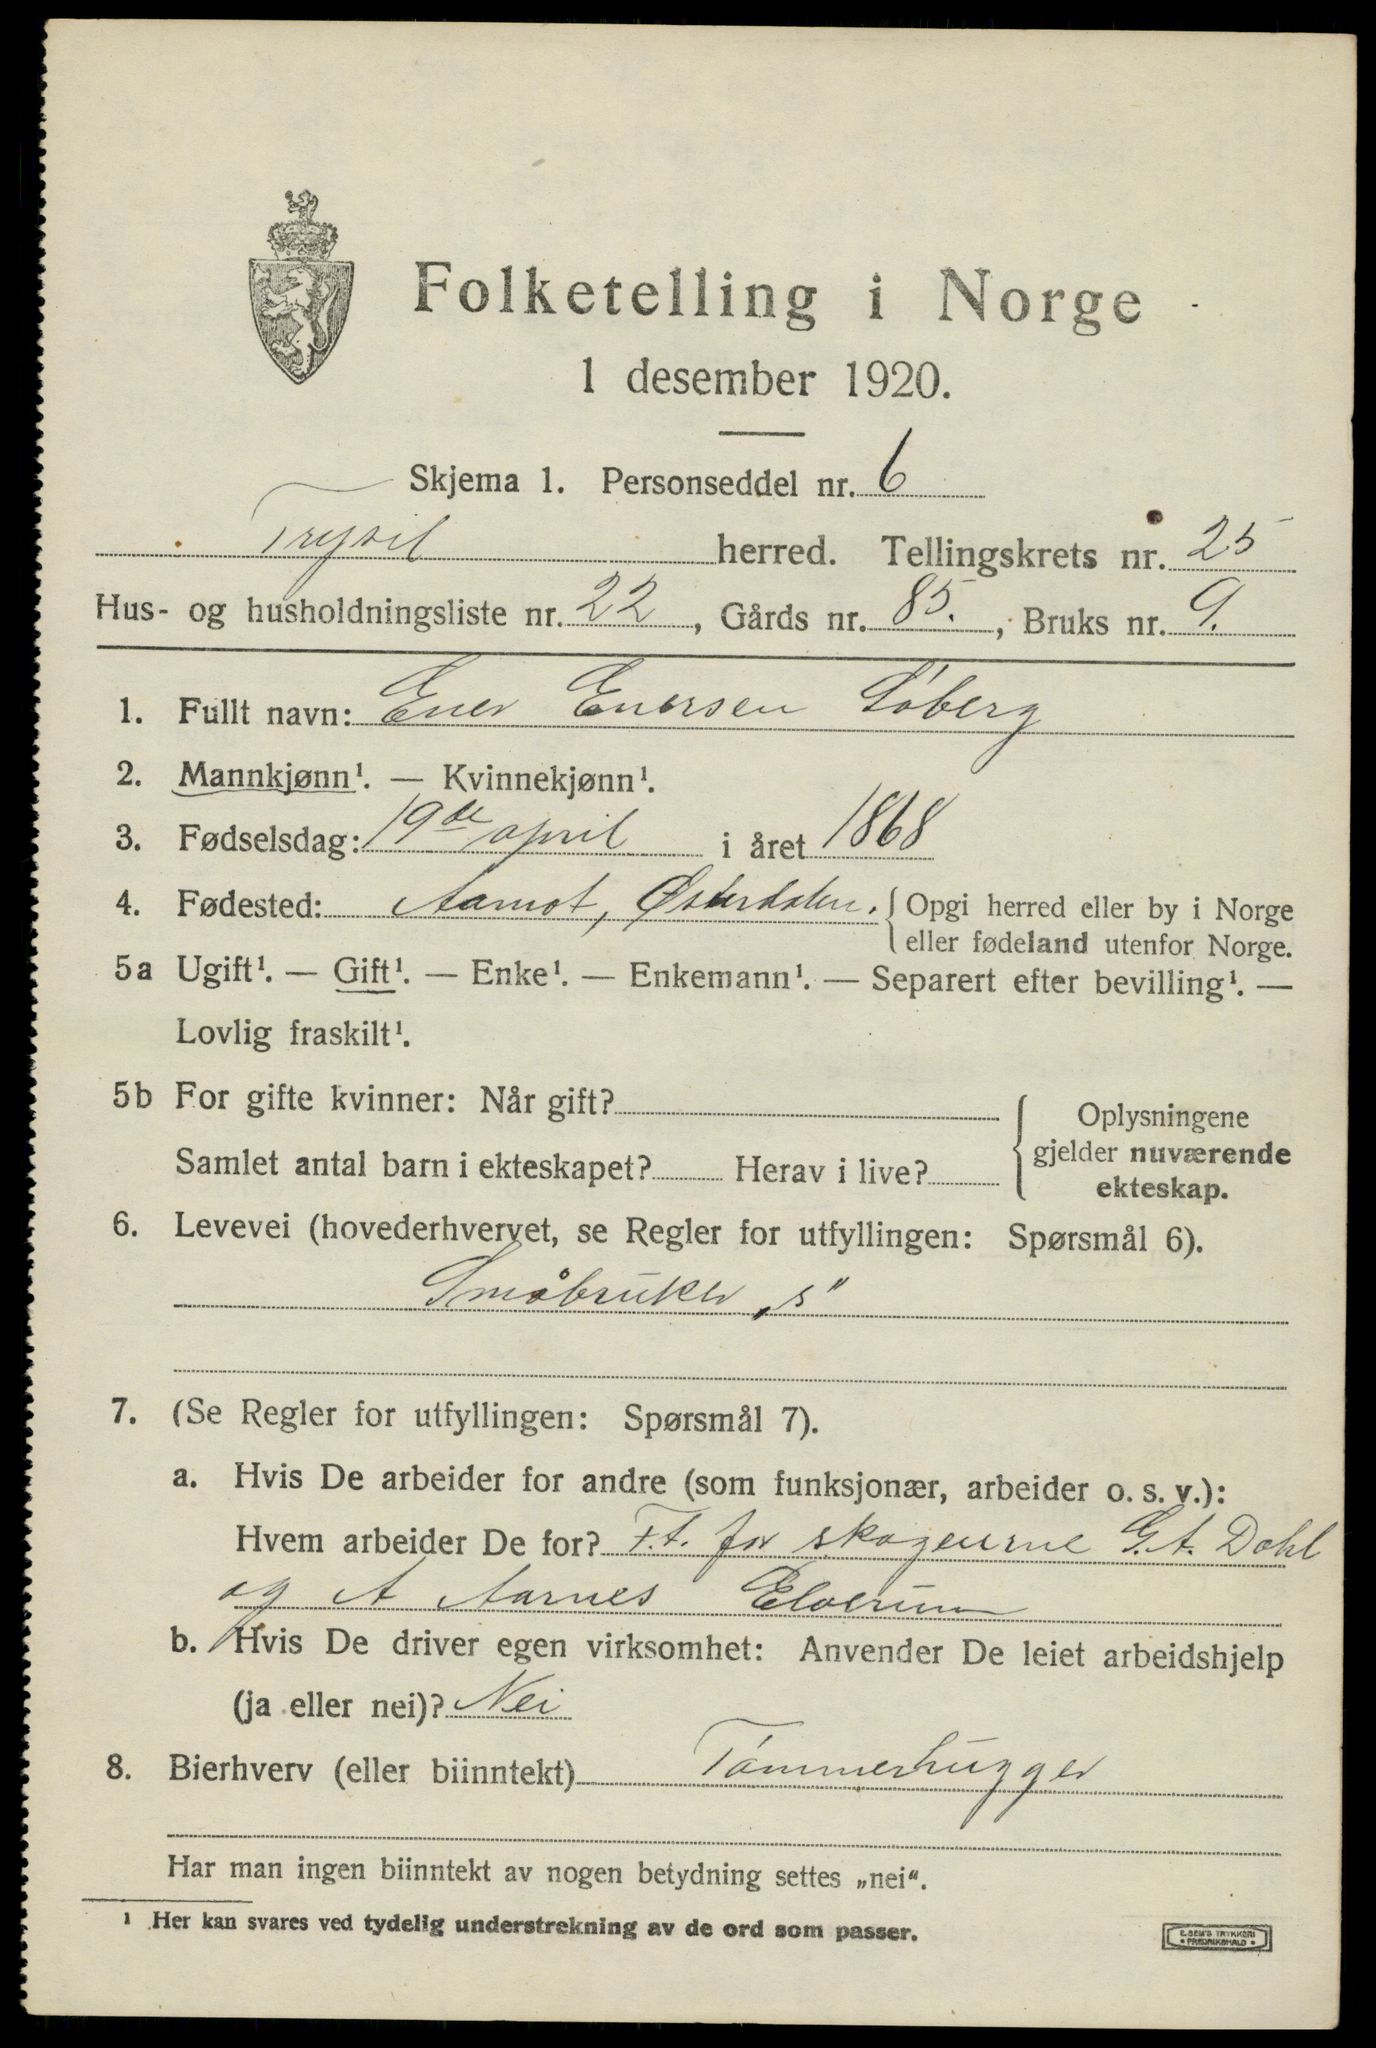 Folketelling i Norge
1 desember 1920.
Skjema 1. Personseddel nr. 6
Trysil herred. Tellingskrets nr. 25
Hus- og husholdningsliste nr. 22, Gårds nr. 85., Bruks nr. 9.
1. Fullt navn: Ener Enersen Søberg
2. Mannkjønn¹. — Kvinnekjønn¹.
3. Fødselsdag: 19de april i året 1868
4. Fødested: Aamot, Østerdalen. { Opgi herred eller by i Norge
eller fødeland utenfor Norge.
5a Ugift¹. — Gift¹. — Enke¹. — Enkemann¹. — Separert efter bevilling¹. —
Lovlig fraskilt¹.
5b For gifte kvinner: Når gift?
Samlet antal barn i ekteskapet? Herav i live?
{ Oplysningene
gjelder nuværende
ekteskap.
6. Levevei (hovederhvervet, se Regler for utfyllingen: Spørsmål 6).
Småbruker „s"
7. (Se Regler for utfyllingen: Spørsmål 7).
a. Hvis De arbeider for andre (som funksjonær, arbeider o. s. v.):
Hvem arbeider De for? F.t. for skogeierne G.A. Dahl
og A Aarnes Elverum
b. Hvis De driver egen virksomhet: Anvender De leiet arbeidshjelp
(ja eller nei)? Nei
8. Bierhverv (eller biinntekt) Tømmerhugger
Har man ingen biinntekt av nogen betydning settes „nei".
¹ Her kan svares ved tydelig understrekning av de ord som passer.
E. SEM'S TRYKKERI
• FREDRIKSHALD •